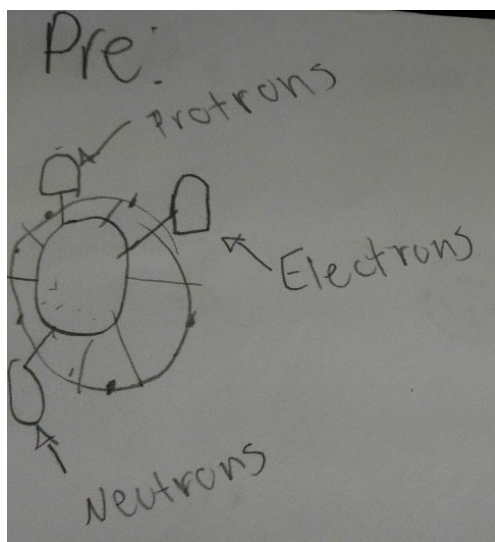 Pre:
Protrons
Electrons
Neutrons